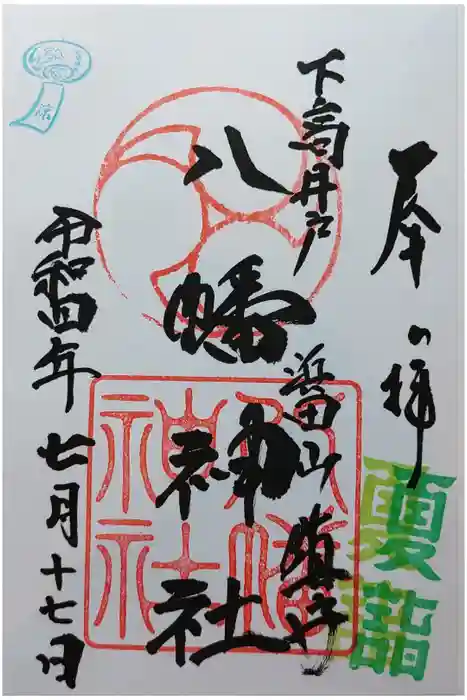 奉拝
夏詣
下高井戸
浜田山鎮守
八幡神社
八幡神社
令和四年七月十七日
涼